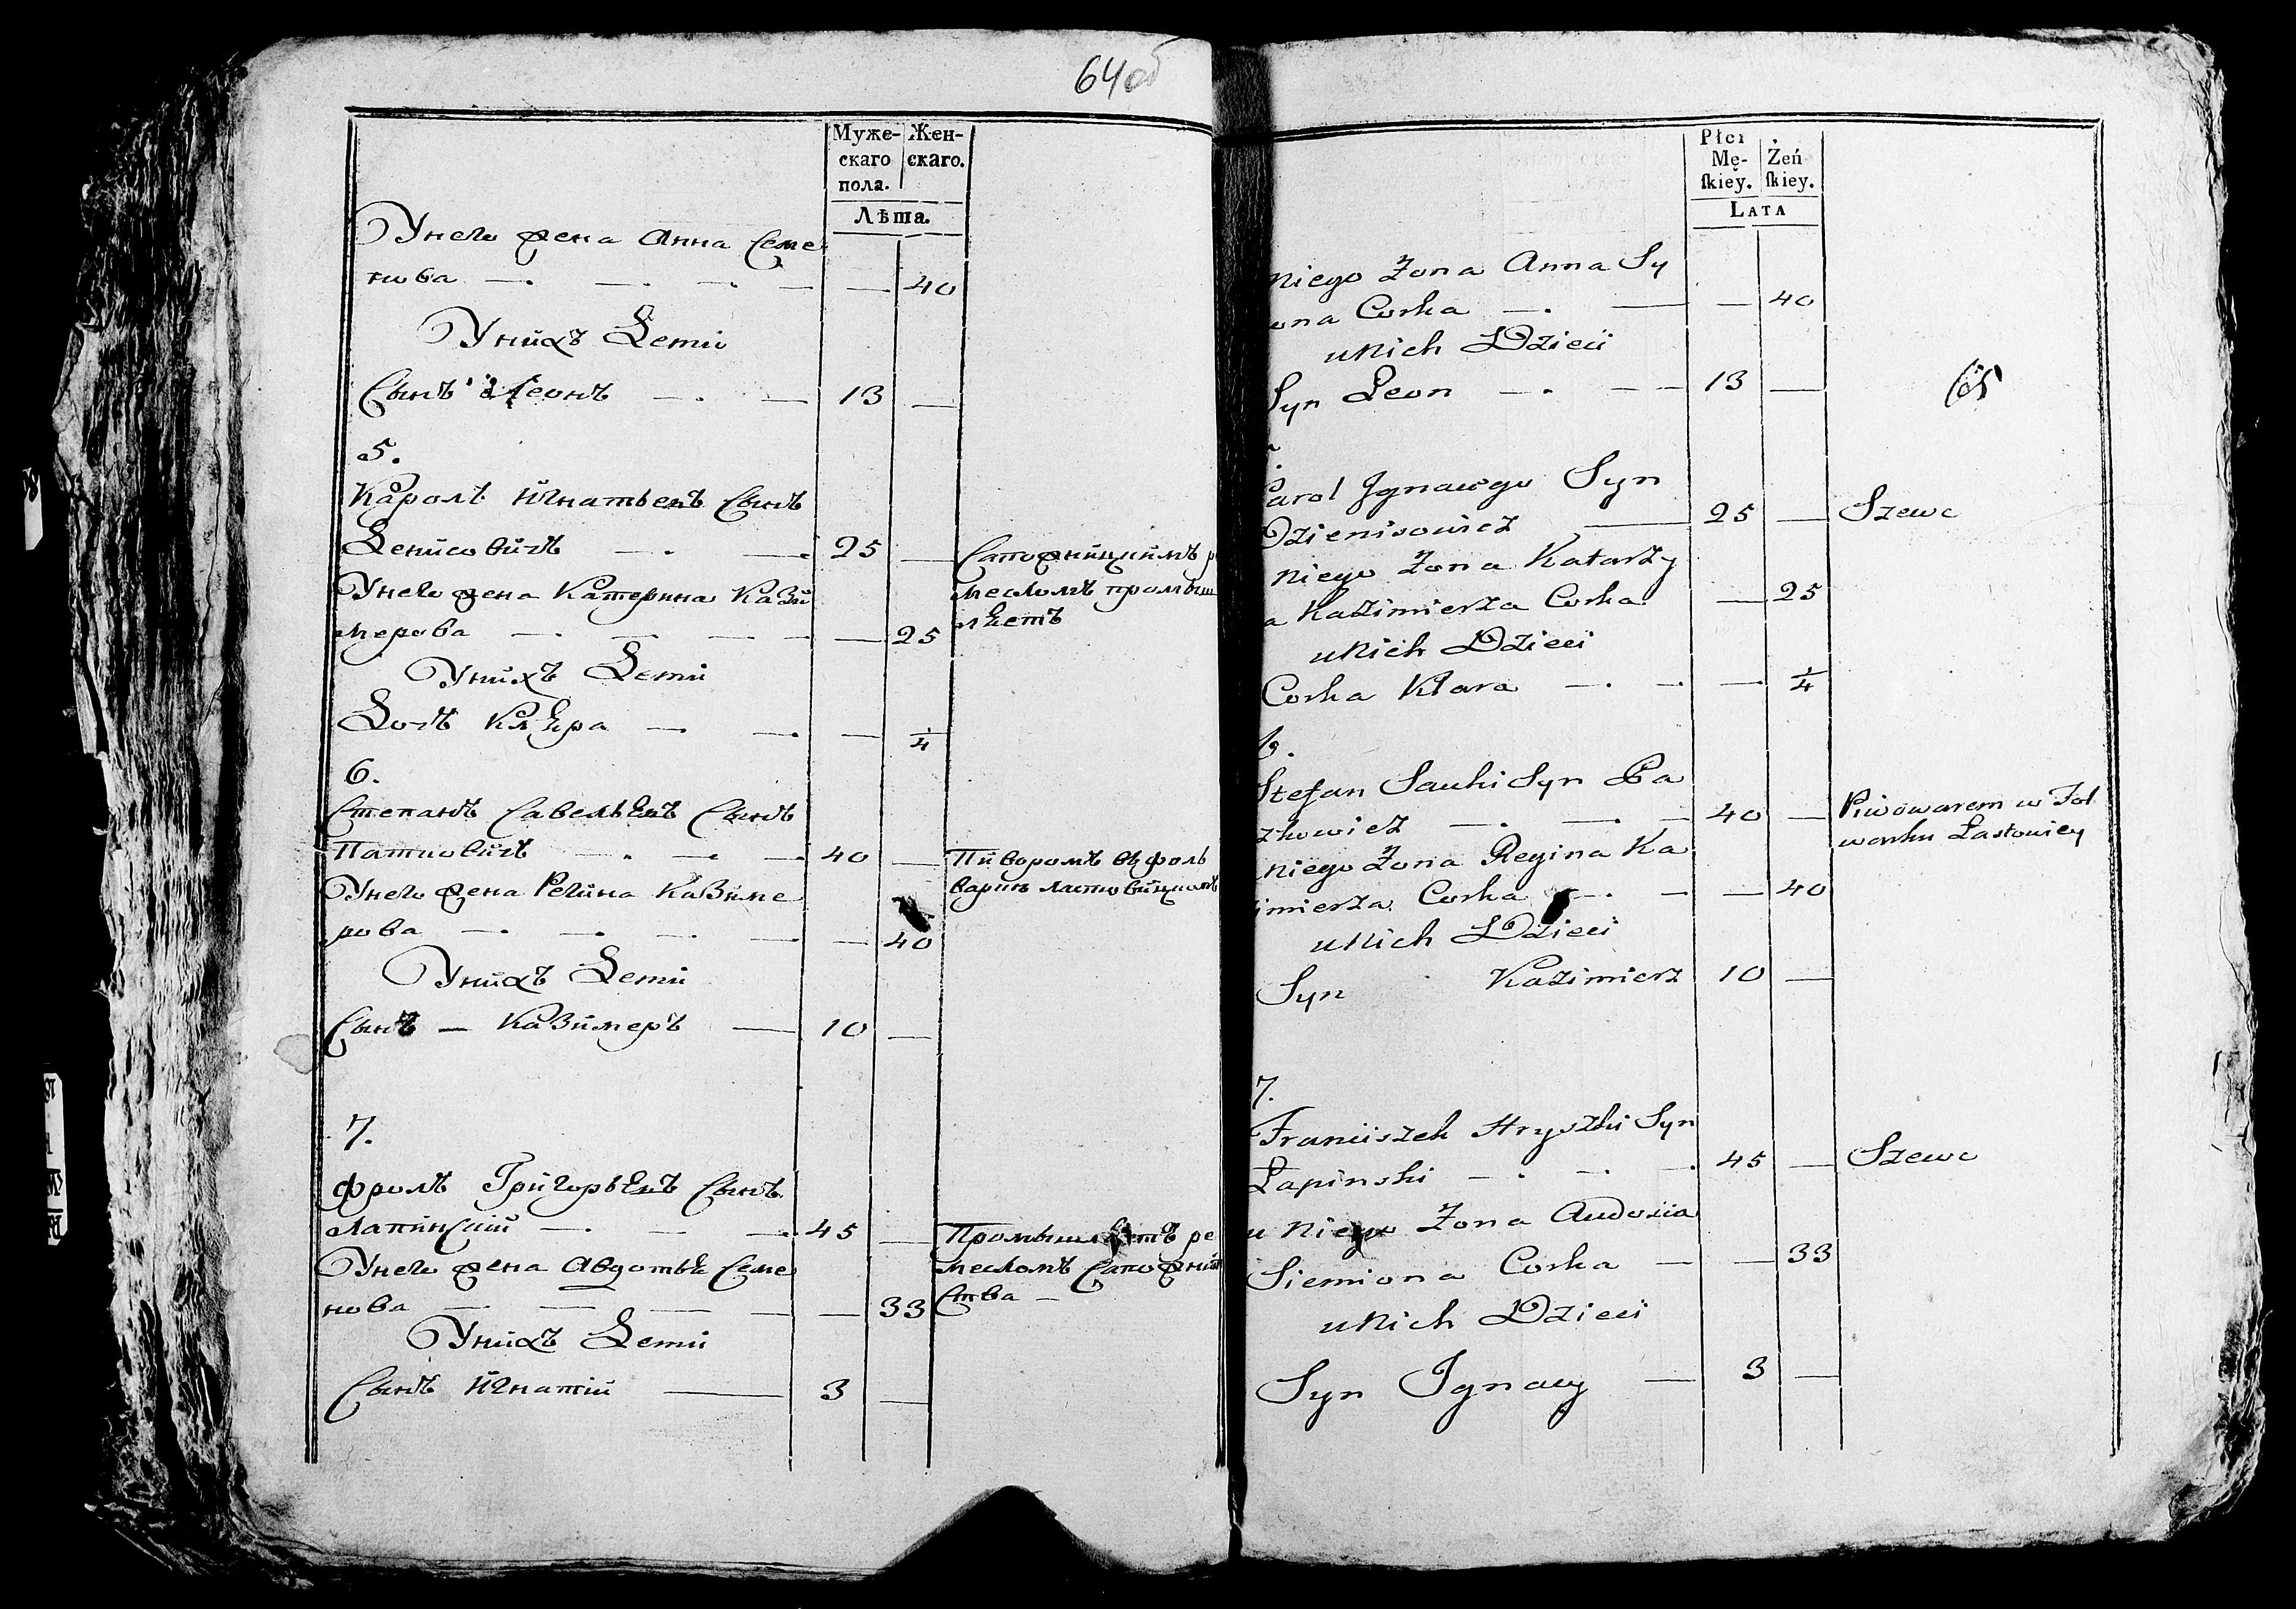 64об
Муже-
скаго
пола.
Жен-
скаго.
Лѣта.
Унего жена Анна Семе
нова 40
Унихъ Дети
Сынъ Леонъ 13
5.
Каролъ Игнатьевъ Сынъ
Денисовичъ 25
Сапожницкимъ ре
месломъ промыш
ляетъ
Унего жена Катерина Кази
мерова 25
Унихъ Дети
Дочь Клара 1/4
6.
Степанъ Савельевъ Сынъ
40
Пиваромъ въ фоль
варкѣ Ластовицкомъ
Унего жена Регина Казиме
рова 40
Унихъ Дети
Сынъ Казимеръ 10
7.
Фролъ Григорьевъ Сынъ
Лапинский 45
Промышляетъ ре
месломъ
ства
Унего жена Авдотья Семе
нова 33
Унихъ Дети
Сынъ Игнатий 3
Płci
Mę-
ſkiey.
Żeń
ſkiey.
Lata
niego Żona Anna Sy
ona Corka 40
unich Dzieci
Syn Leon 13
65
Carol Jgnacego Syn
Dzienisowicz 25 Szewc
niego Żona Katarzy
a Kazimierza Corka 25
unich Dzieci
Corka Klara 1/4
6.
Stefan Sauki Syn Pa
zkowicz 40
Piwowarem w Fol
warku Łastowicy
niego Żona Regina Ka
imierza Corka 40
unich Dzieci
Syn Kazimierz 10
7.
Franciszek Hryszki Syn
Łapinski 45 Szewc
u niego Żona Audocia
Siemiona Corka 33
unich Dzieci
Syn Jgnacy 3